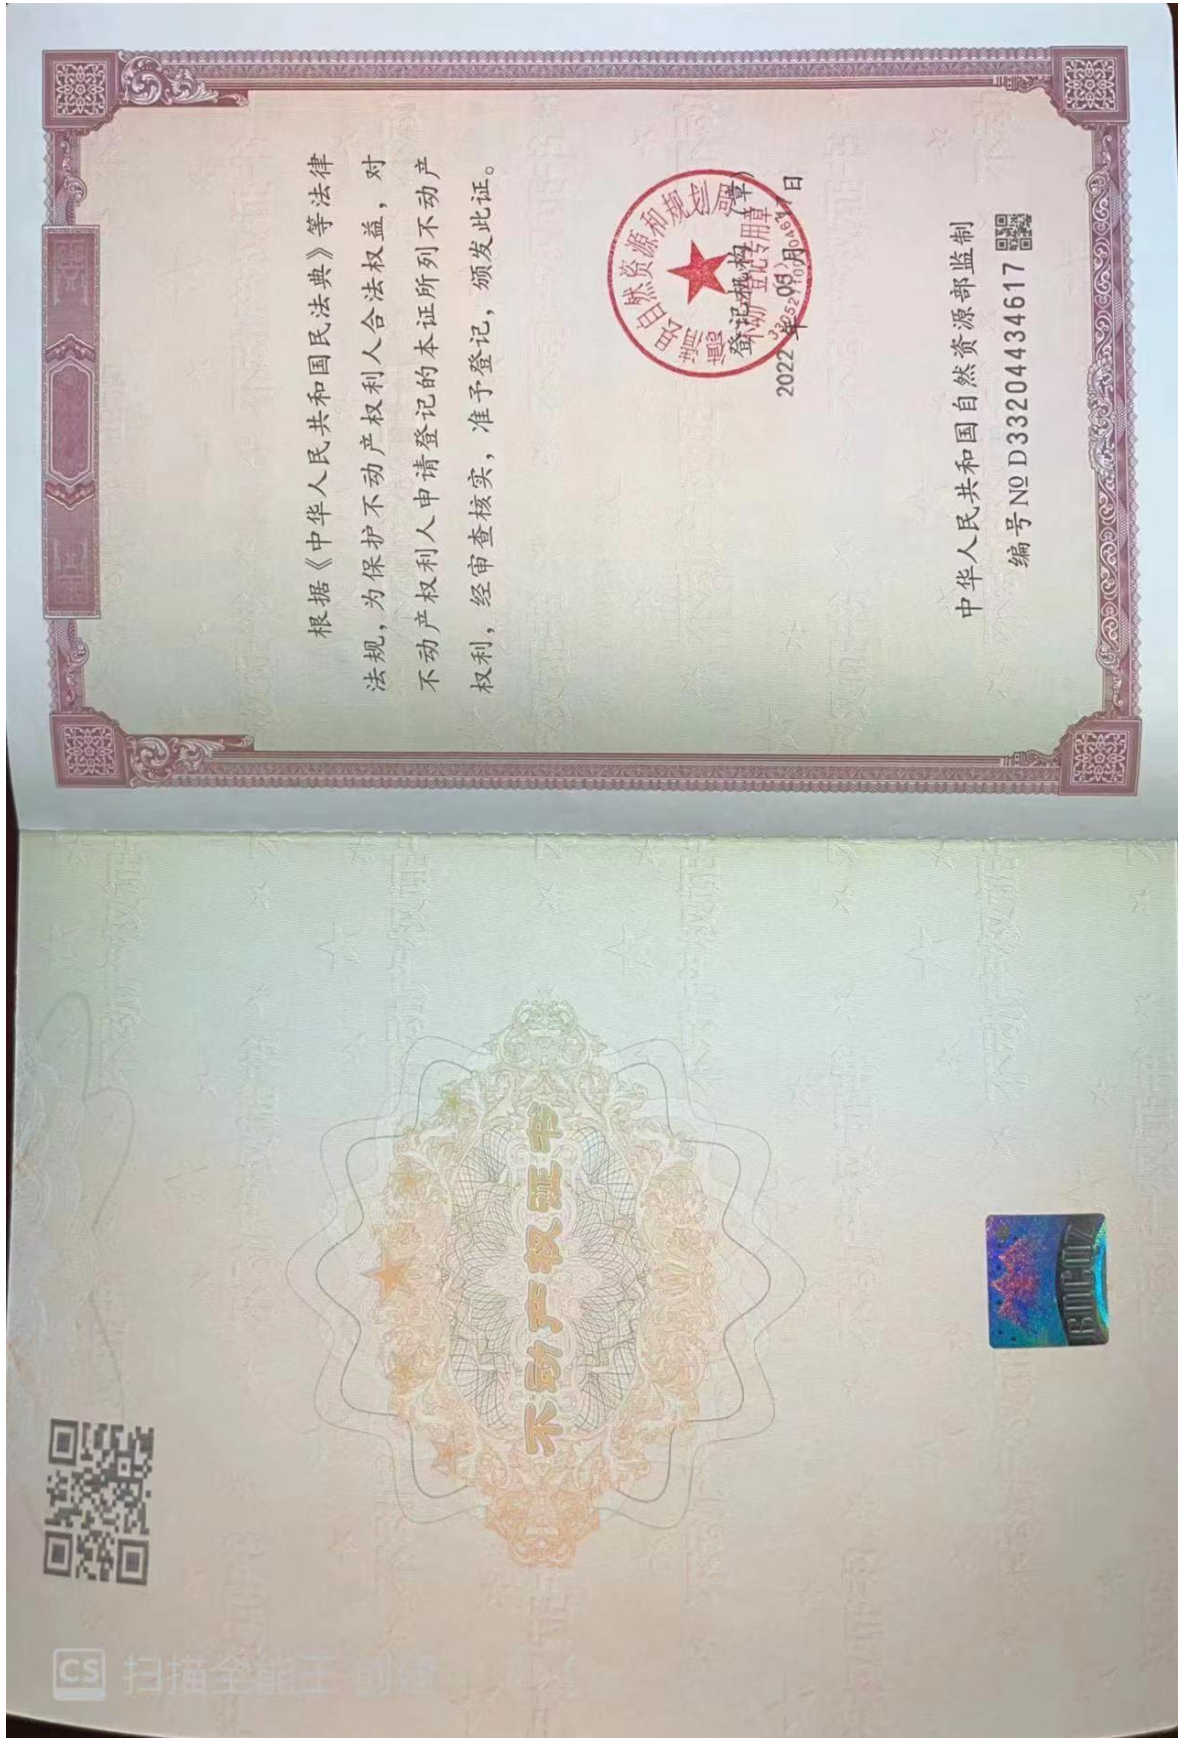 不动产权证书
根据《中华人民共和国民法典》等法律
法规，为保护不动产权利人合法权益，对
不动产权利人申请登记的本证所列不动产
权利，经审查核实，准予登记，颁发此证。
自然资源和规划局
不动产登记专用章
登记机构（章）
2022 年 05 月 17 日
中华人民共和国自然资源部监制
编号 № D33204434617
BDCQZ
CS 扫描全能王 创建